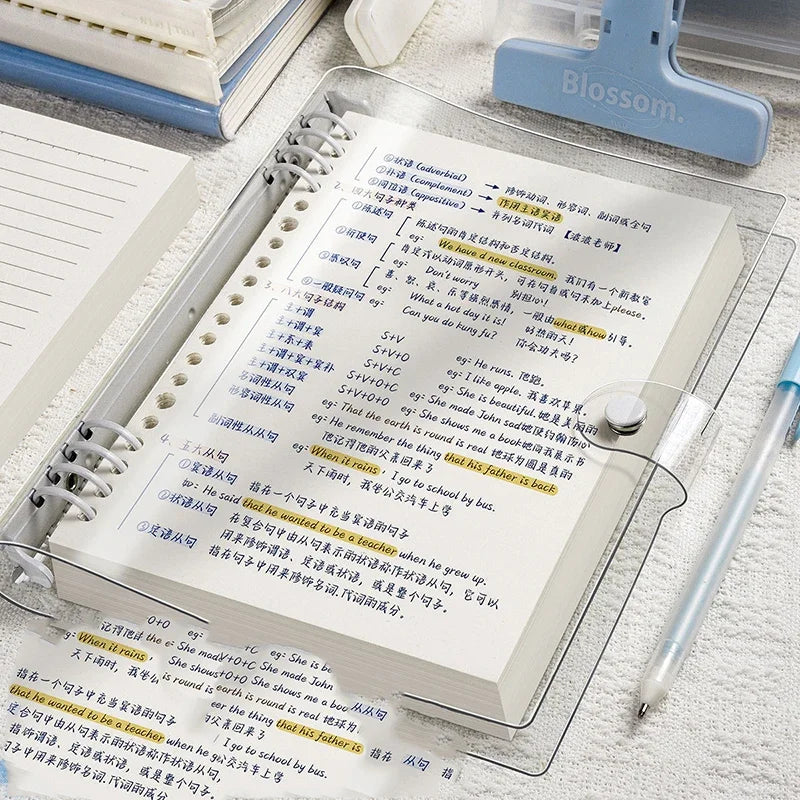 Blossom.
④状语 (adverbial)
⑤补语 (complement) → 修饰动词、形容词、副词或全句
⑥同位语 (appositive) → 作用主语宾语
→ 并列名词代词 【波波老师】
2、四大句子种类
①陈述句 陈述句的肯定结构和否定结构.
eg: We have a new classroom. 我们有一个新教室
②祈使句 肯定式以动词原形开头, 可在句首或句末加上please.
eg: Don't worry 别担心!
③感叹句 喜、怒、哀、乐等强烈感情, 一般由what或how引导.
eg: What a hot day it is! 好热的天!
④一般疑问句 eg: Can you do kung fu? 你会功夫吗?
3、八大句子结构
主+谓 S+V eg: He runs. 他跑.
主+谓+宾 S+V+O eg: I like apple. 我喜欢苹果.
主+系+表 S+V+C eg: She is beautiful. 她是美丽的
主+谓+宾+宾补 S+V+O+C eg: She made John sad 她使约翰伤心
主+谓+双宾 S+V+O+O eg: She shows me a book 她向我展示书
名词性从句 eg: That the earth is round is real 地球为圆是真的
形容词性从句 eg: He remember the thing that his father is back
他记得他的父亲回来了
副词性从从句 eg: When it rains, I go to school by bus.
天下雨时, 我坐公交汽车上学
4、五大从句
①宾语从句 指在一个句子中充当宾语的句子
如: He said that he wanted to be a teacher when he grew up.
②状语从句 在复合句中由从句表示的状语称作状语从句, 它可以
用来修饰谓语、定语或状语, 或是整个句子.
③定语从句 指在句子中用来修饰名词.代词的成分.
记得他 the
O+O eg:
When it rains, She mad V+O+C She made John
+C eg: She is be
天下雨时, 我坐 She shows +O+O She shows me a boo 从从句
is round is earth is round is real 地球为
指在一个句子中充当宾语的句子 eer the thing that his father is 指在 从句 指
that he wanted to be a teacher 父亲回来了
定合句中由从句表示的状语称作状语从句, when he g I go to school by bus.
指饰谓语、定语或状语, 或是整个句子. 公交汽车上学
句子中用来修饰名词.代词的成分